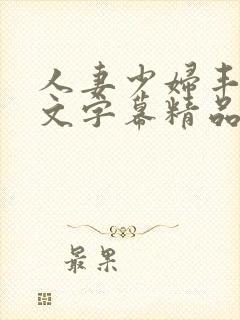 人妻少婦丰
文字幕精品
最果